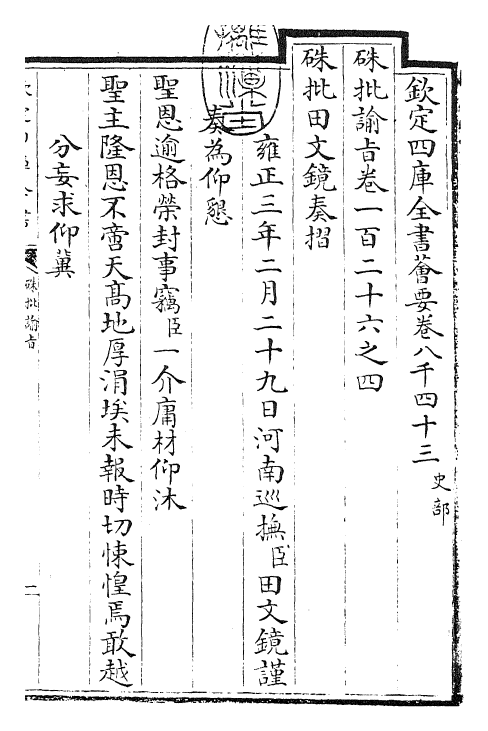 欽定四庫全書薈要卷八千四十三 史部
硃批諭旨卷一百二十六之四
硃批田文鏡奏摺
雍正三年二月二十九日河南巡撫臣田文鏡謹
奏為仰懇
聖恩逾格榮封事竊臣一介庸材仰沐
聖主隆恩不啻天髙地厚涓埃未報時切悚惶焉敢越
分妄求仰冀
硃批諭旨